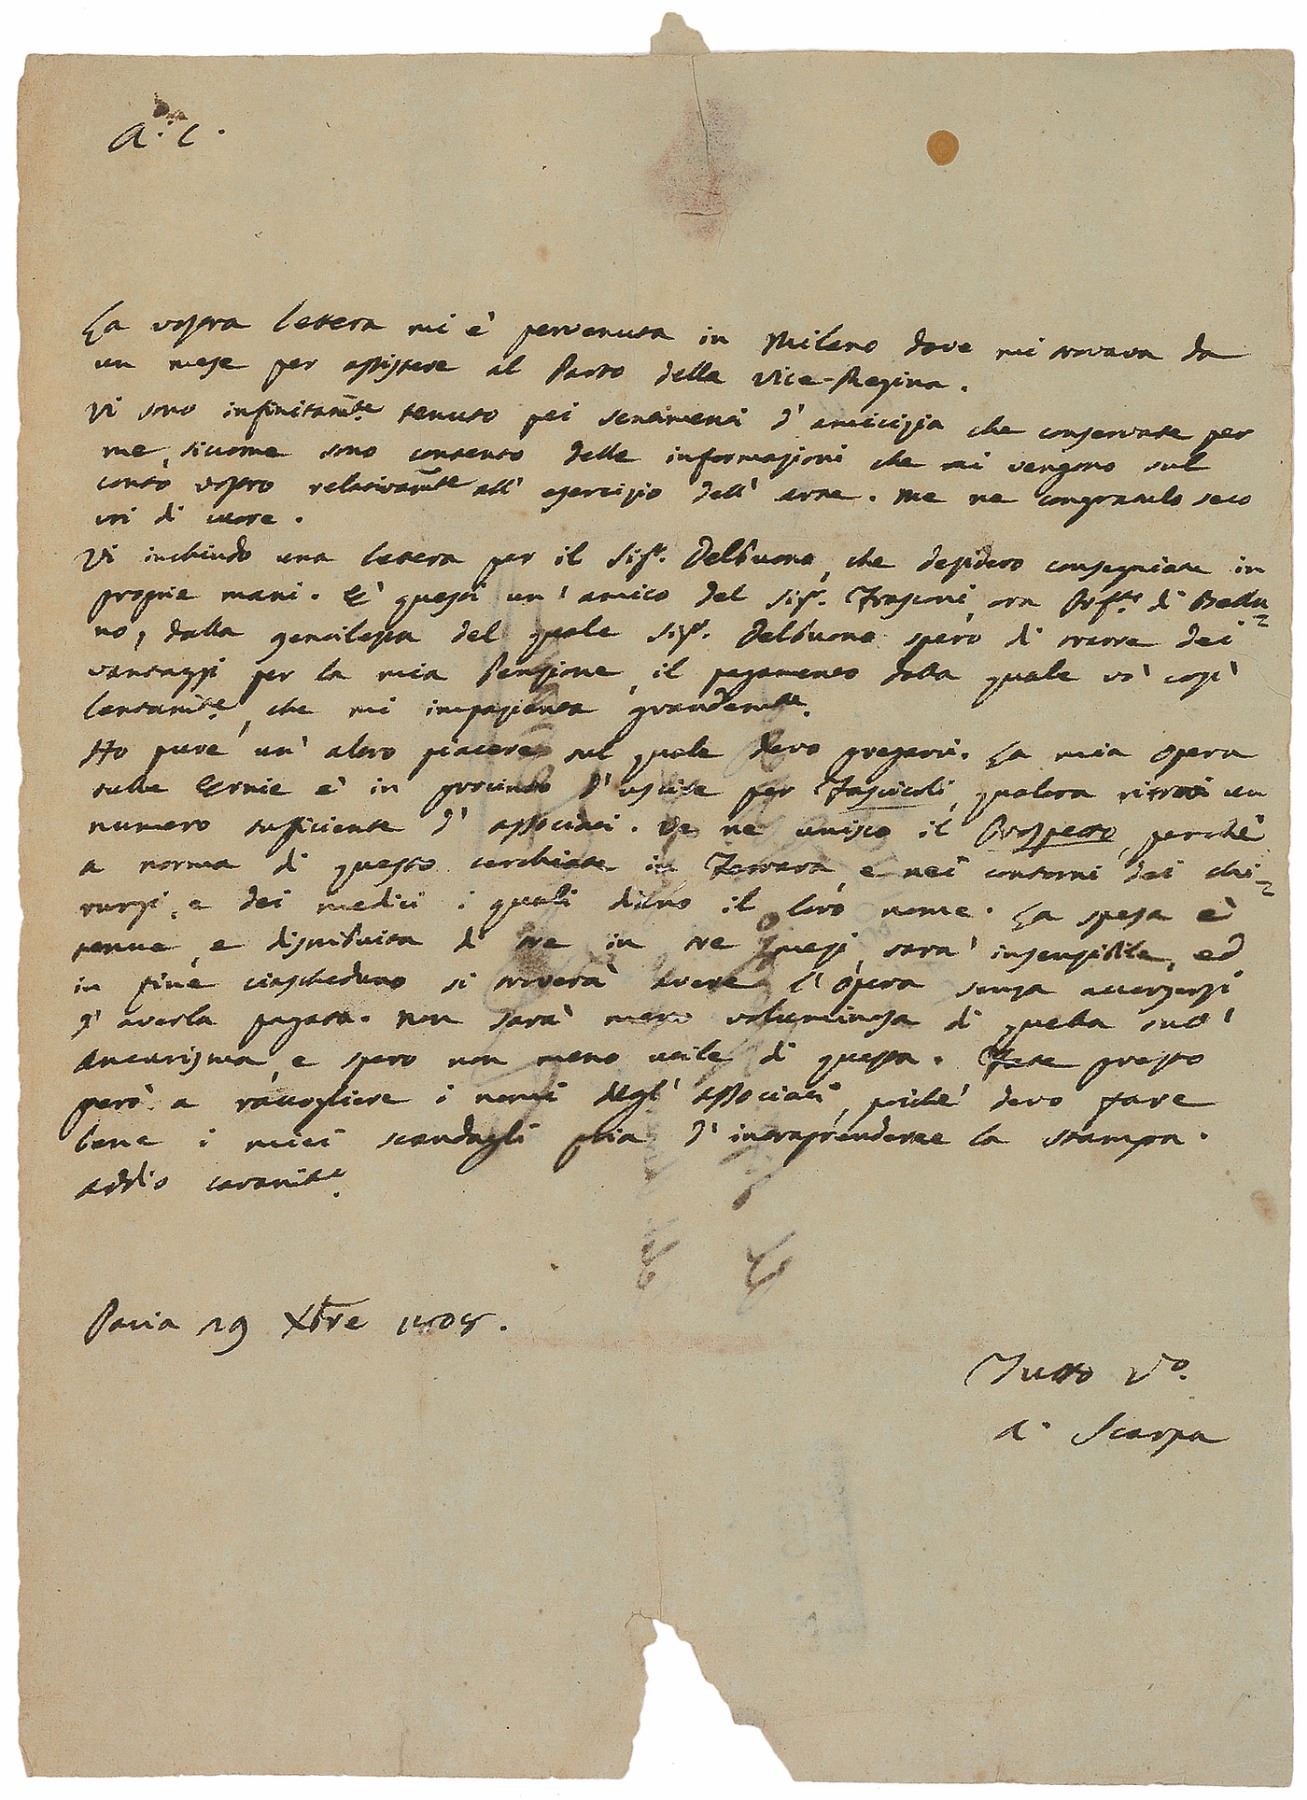 A. C.
La vostra lettera mi è pervenuta in Milano dove mi trovava da
un mese per assistere al Parto della Vice-Regina.
Vi sono infinitamte tenuto pei sentimenti d' amicizia che conservate per
me, siccome sono contento delle informazioni che mi vengono sul
conto vostro relativamte all' esercizio dell' arte. Me ne congratulo seco
voi di cuore.
Vi inchiudo una lettera per il Sigr. Delbuono, che desidero consegniate in
proprie mani. E' questi un' amico del Sigr. Frasconi, ora Prftto di Bellu=
no, dalla gentilezza del quale Sigr. Delbuono spero di trarre dei
vantaggi per la mia Pensione, il pagamento della quale và così
lentamte, che mi impazienta grandemte.
Ho pure un' altro piacere sul quale devo pregarvi. La mia opera
sulle Ernie è in procinto d' uscire per Fascicoli, qualora ritrovi un
numero sufficiente d' associati. Ve ne unisco il Prospetto, perchè
a norma di questo cerchiate in Ferrara, e nei contorni dei chi=
rurgi, e dei medici i quali diano il loro nome. La spesa è
tenue, e distribuita di tre in tre mesi, sarà insensibile, ed
in fine ciascheduno si troverà avere l' opera senza accorgersi
d' averla pagata. Non sarà meno voluminosa di quella sull'
Aneurisma, e spero non meno utile di questa. Fate presto
però a raccogliere i nomi degl' associati, poichè devo fare
bene i miei scandagli pria d' intraprenderne la stampa.
Addio caramte.
Pavia 29 Xbre 1808.
Tutto Vo.
A. Scarpa